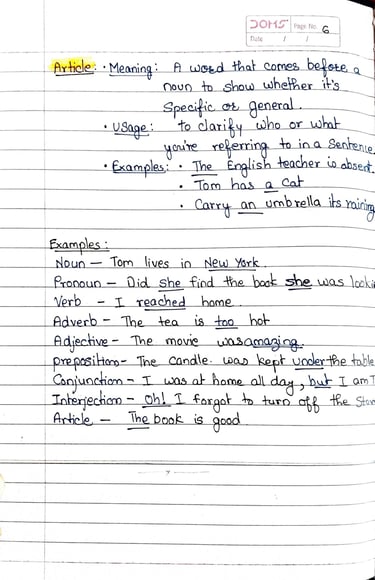 DOMS Page No. 6
Date / /
Article: • Meaning: A word that comes before a
noun to show whether it's
specific or general.
• Usage: to clarify who or what
you're referring to in a sentence.
• Examples: • The English teacher is absent.
• Tom has a cat
• Carry an umbrella its raining
Examples:
Noun – Tom lives in New York.
Pronoun – Did she find the book she was
Verb – I reached home.
Adverb – The tea is too hot
Adjective – The movie was amazing.
preposition – The candle was kept under the table
Conjunction – I was at home all day, but I am
Interjection – Oh! I forgot to turn off the
Article – The book is good